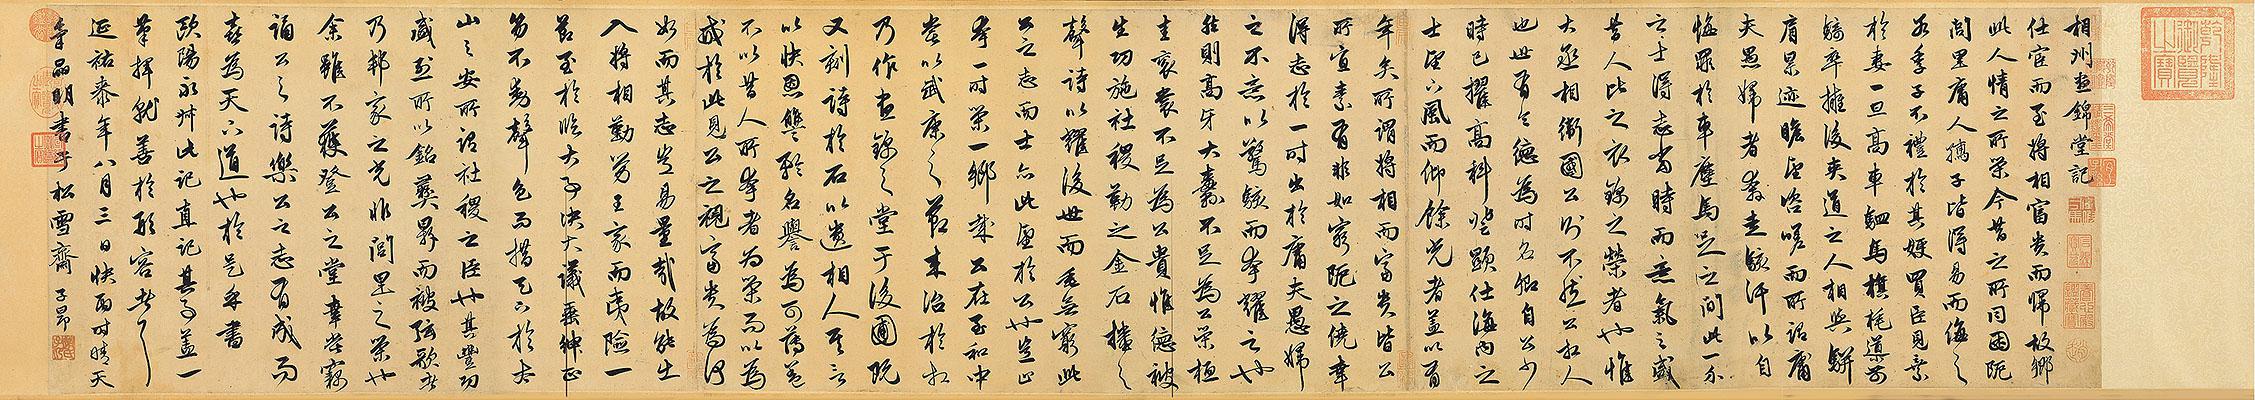 相州晝錦堂記
仕宦而至將相富貴而歸故鄉
此人情之所榮今昔之所同困阨
閭里庸人孺子皆得易而侮之
若季子不禮於其嫂買臣見棄
於妻一旦高車駟馬旗旄導前
騎卒擁後夾道之人相與駢
肩累迹瞻望咨嗟而所謂庸
夫愚婦者奔走駭汗以自
悔罪於車塵馬足之間此一介
之士得志當時而意氣之盛
昔人比之衣錦之榮者也惟
大丞相衛國公則不然公相人
也世有令德為時名卿自公少
時已擢高科登顯仕海內之
士望下風而仰餘光者蓋以有
年矣所謂將相而富貴皆公
所宜素有非如窮阨之僥幸
得志於一時出於庸夫愚婦
之不意以驚駭而夸耀之也
然則高牙大纛不足為公榮桓
圭袞裳不足為公貴惟德被
生功施社稷勒之金石播之
聲詩以耀後世而垂無窮此
公之志而士亦此望於公也豈止
夸一時榮一鄉哉公在至和中
嘗以武康之節來治於相
乃作晝錦之堂于後圃既
又刻詩於石以遺相人其言
以快恩讎矜名譽為可薄蓋
不以昔人所夸者為榮而以為
戒於此見公之視富貴為何
如而其志豈易量哉故能出
入將相勤勞王家而夷險一
節至於臨大事決大議垂紳正
笏不動聲色而措天下於太
山之安所謂社稷之臣也其豐功
盛烈所以銘彝鼎而被弦歌者
乃邦家之光非閭里之榮也
余雖不獲登公之堂幸嘗竊
誦公之詩樂公之志有成而
喜為天下道也於是乎書
歐陽永叔此記直記其事蓋一
筆揮就善於形容者
延祐年八月三日快雨時晴天
氣晶明書于松雪齋 子昂
乾隆御覽之寶